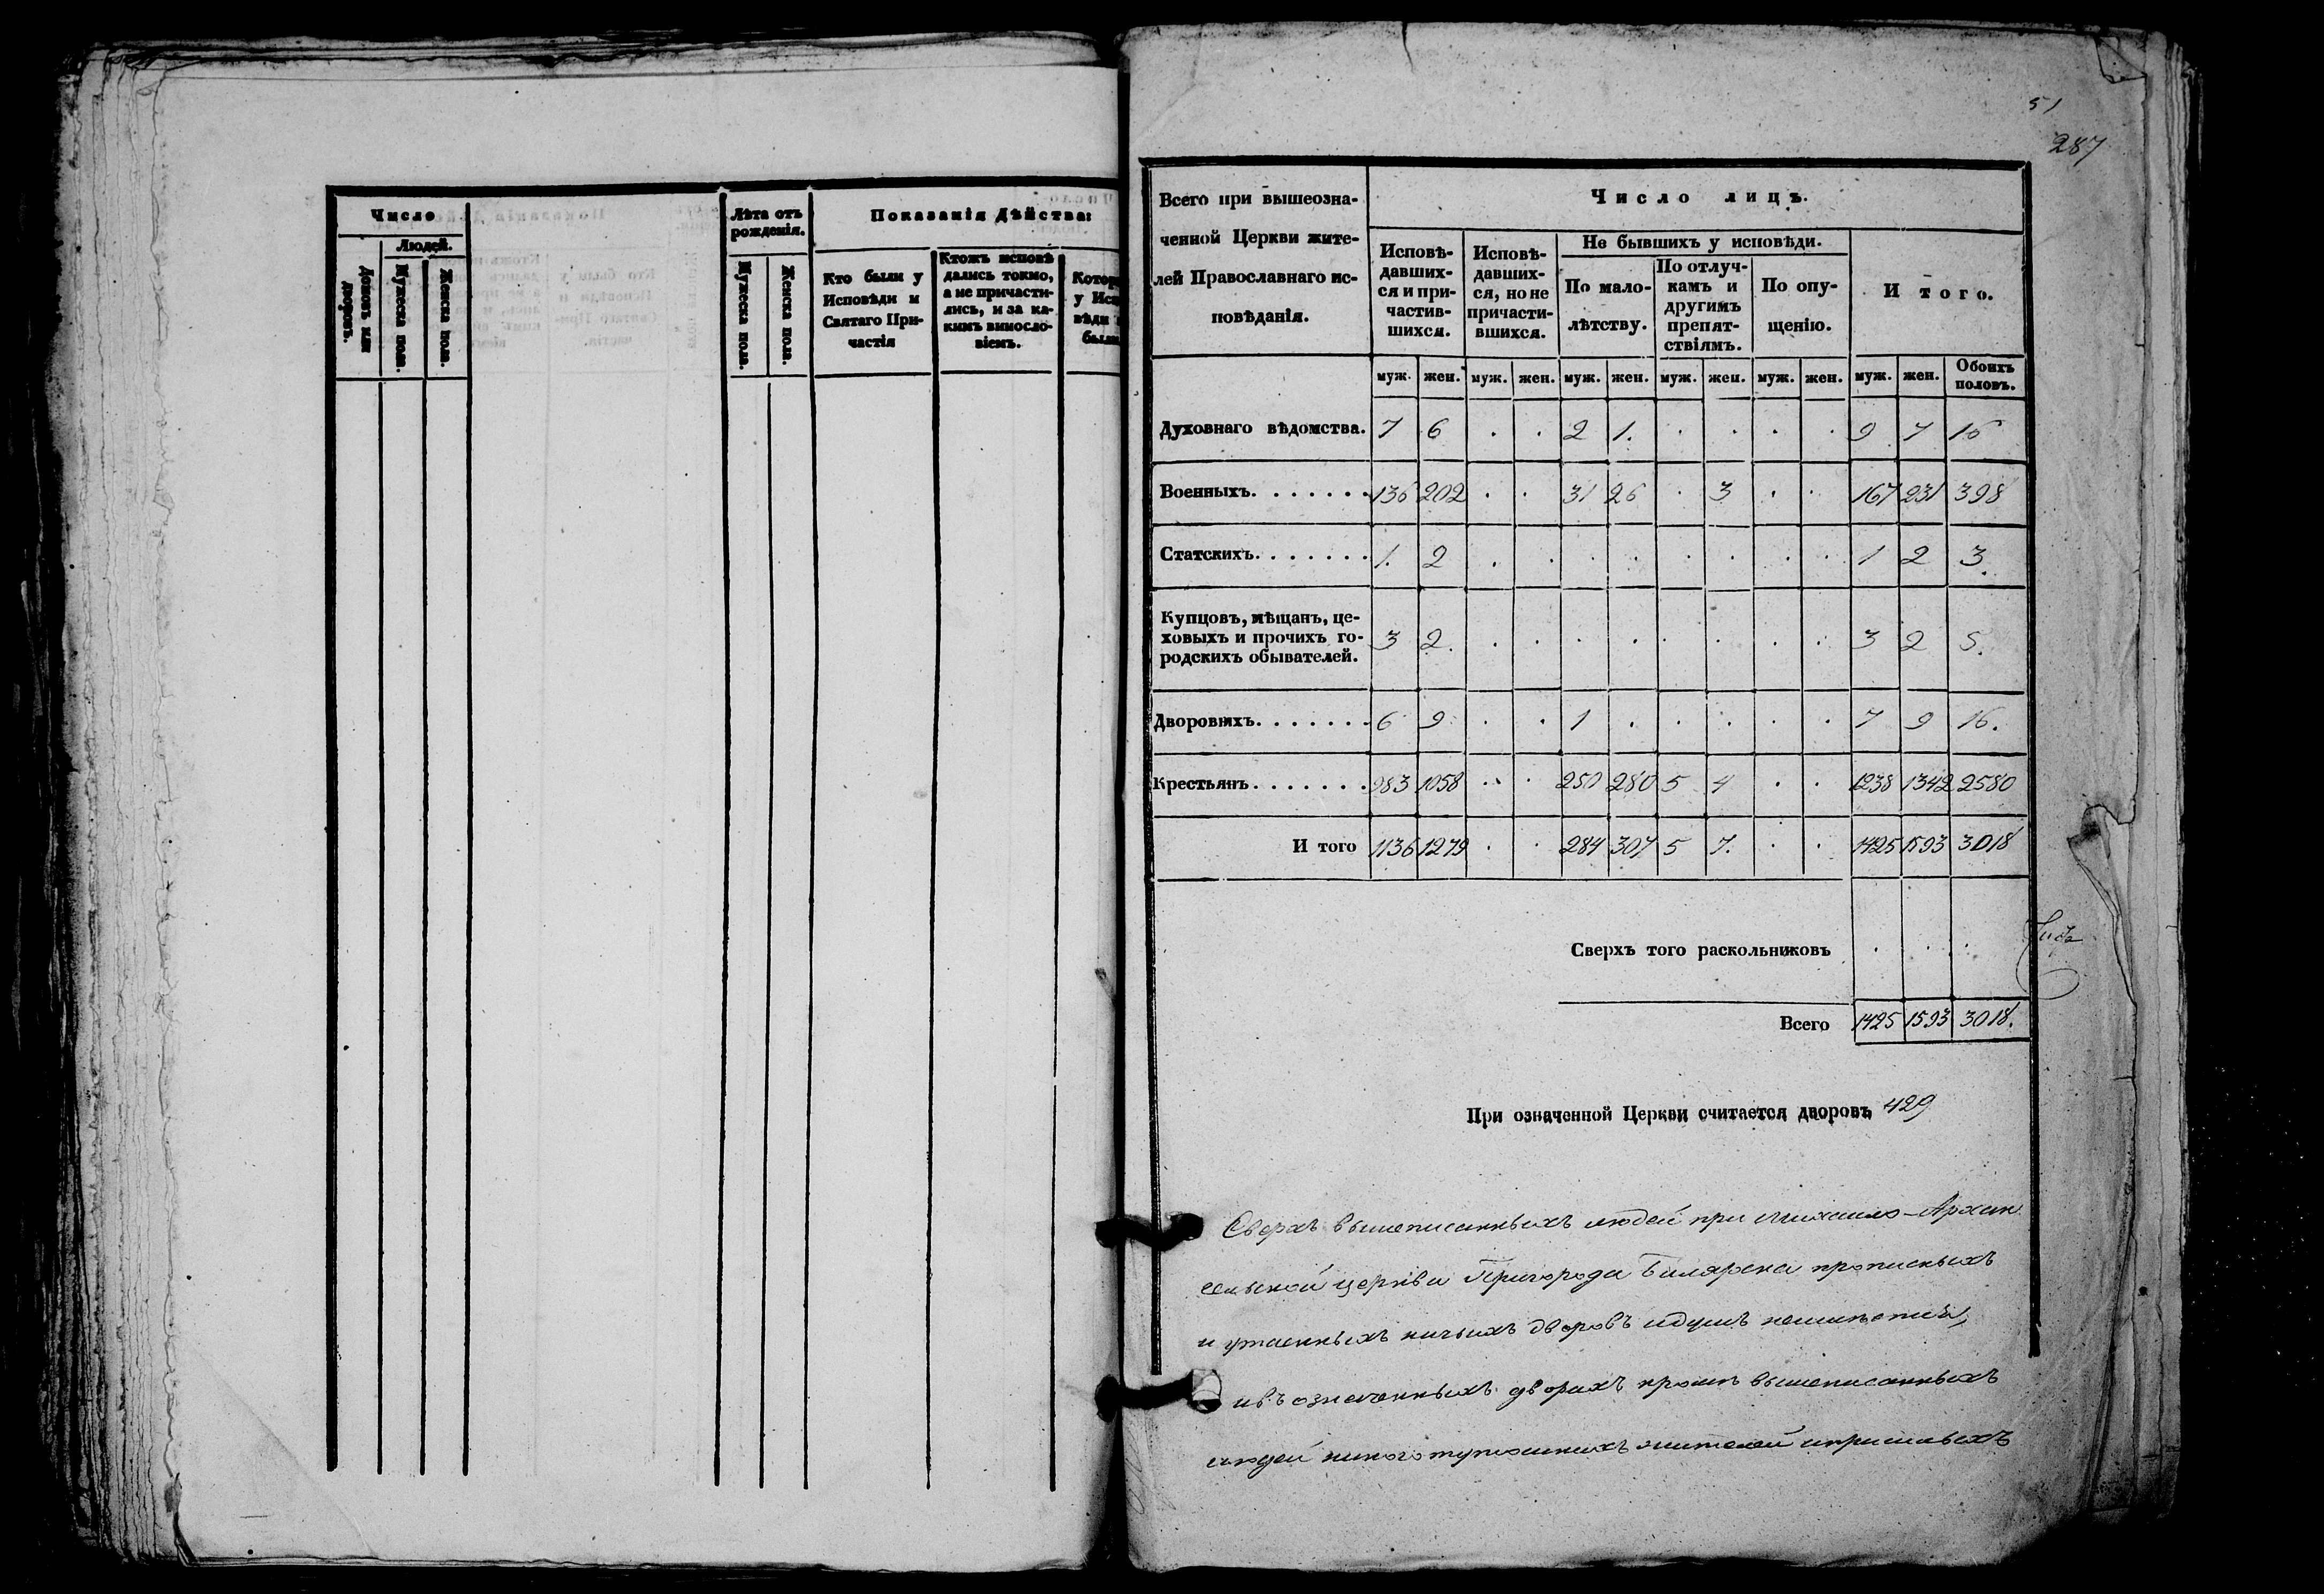 Число
Людей.
Домовъ или дворовъ.
Мужеска пола.
Женска пола.
Лѣта отъ рожденія.
Мужеска пола.
Женска пола.
Показанія Дѣйства:
Кто были у
Исповѣди и
Святаго При-
частія
Ктожъ исповѣ
дались токмо,
а не причасти-
лись, и за ка-
кимъ винословіемъ.
51
287
Всего при вышеозна-
ченной Церкви жите-
лей Православнаго ис-
повѣданія.
Число лицъ.
Исповѣ-
давших-
ся и при-
частив-
шихся.
Исповѣ-
давших-
ся, но не
причасти-
вшихся.
Не бывшихъ у исповѣди.
По мало-
лѣтству.
По отлуч-
камъ и
другимъ
препят-
ствіямъ.
По опу-
щенію.
И того.
муж. жен. муж. жен. муж. жен. муж. жен. муж. жен. муж. жен. Обоихъ половъ.
Духовнаго вѣдомства. 7 6 . . 2 1. . . . . 9 7 16
Военныхъ. . . . . . . 136 202 . . 31 26 . 3 . . 167 231 398
Статскихъ. . . . . . . 1. 2 . . . . . . . . 1 2 3.
Купцовъ, мѣщанъ, це-
ховыхъ и прочихъ го-
родскихъ обывателей. 3 2. . . . . . . . . 3 2 5.
Дворовыхъ. . . . . . . 6 9 . . 1 . . . . . 7 9 16.
Крестьянъ. . . . . . . 983 1058 . . 250 280 5 4 . . 1238 1342 2580
И того 1136 1279 . . 284 307 5 7. . . 1425 1593 3018
Сверхъ того раскольниковъ . . .
Всего 1425 1593 3018.
При означенной Церкви считается дворовъ 429
Сверхъ вышеписанныхъ людей при Михаило-Архан
гельской церкви Пригорода Билярска прописныхъ
и утаенныхъ ничьихъ дворовъ
ивъ означенныхъ дворахъ кромѣ вышеписанныхъ
людей никого тутошнихъ жителей ипришлыхъ